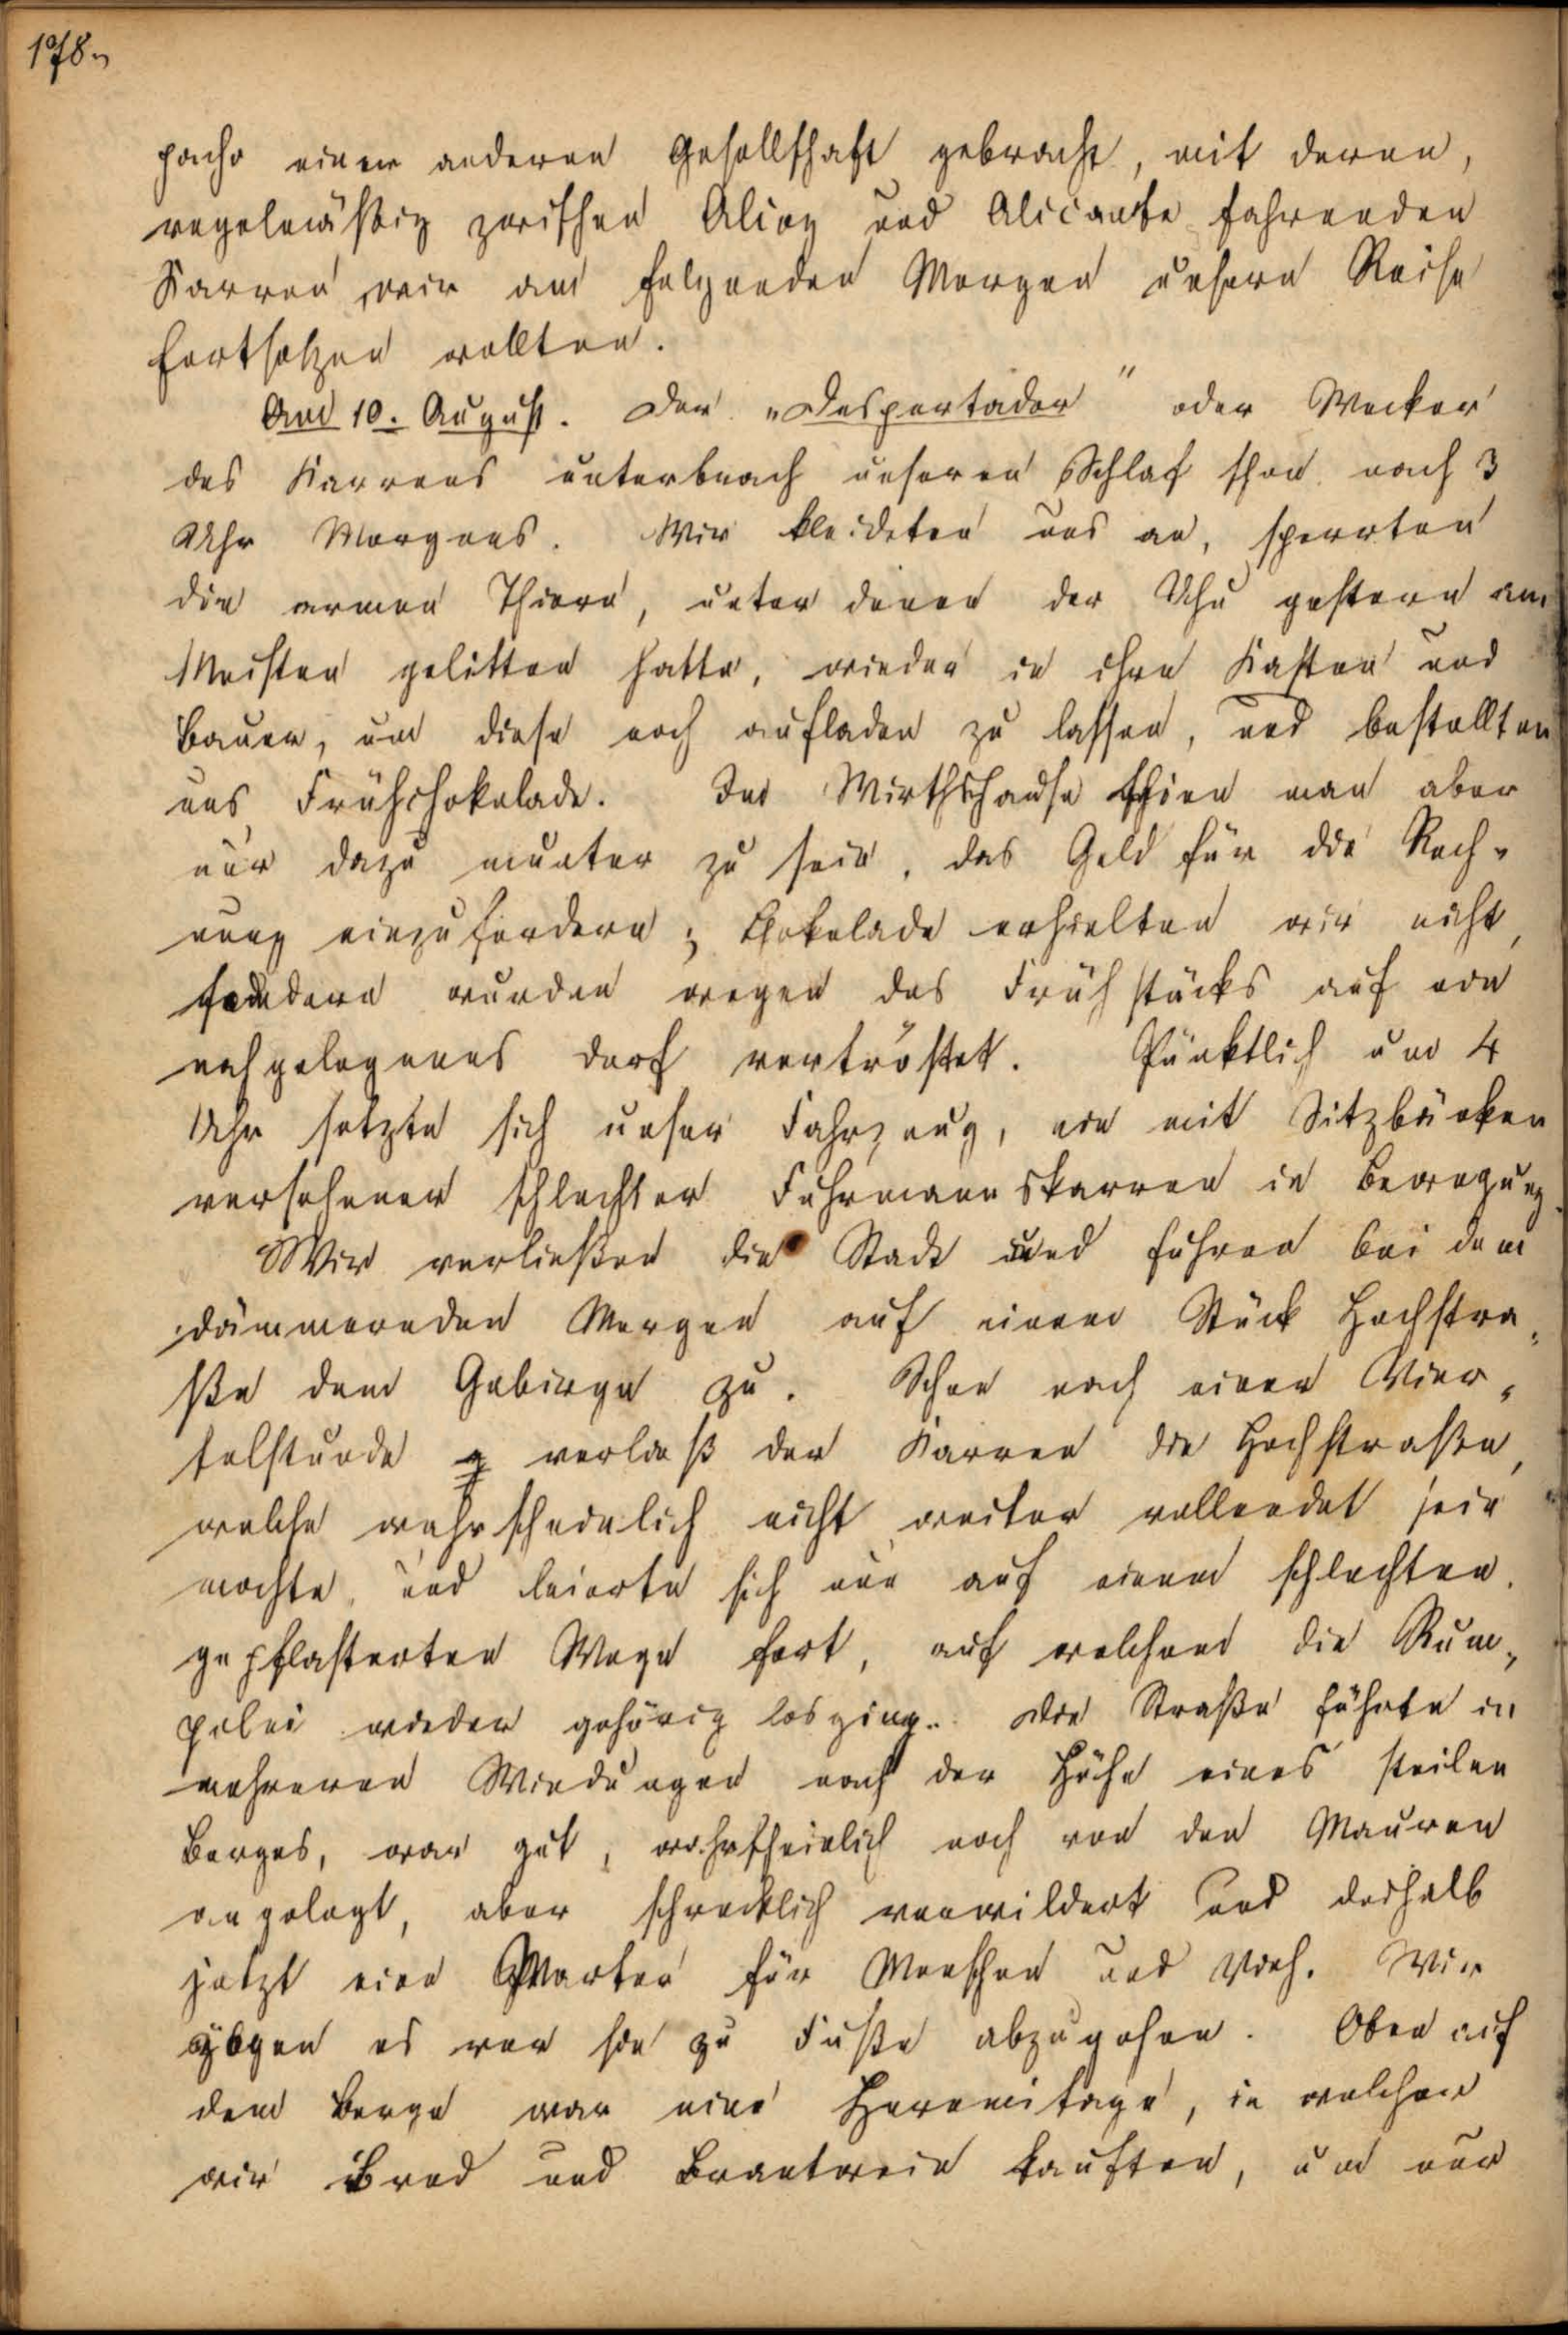 178.
pacho einer anderen Gesellschaft gebracht, mit deren,
regelmäßig zwischen Alcoy und Alicante fahrenden
Karren wir am folgenden Morgen unsere Reise
fortsetzen wollten.
Am 10. August. Der „Despertador" oder Wecker
des Karrens unterbrach unseren Schlaf schon nach 3
Uhr Morgens. Wir kleideten uns an, sperrten
die armen Thiere, unter denen der Uhu gestern am
Meisten gelitten hatte, wieder in ihre Kasten und
Bauer, um diese noch aufladen zu lassen, und bestellten
uns Frühchokolade. Im Wirthshause schien man aber
nur dazu munter zu sein, das Geld für die Rech-
nung einzufordern; Chokolade erhielten wir nicht,
sondern wurden wegen des Frühstücks auf ein
nahgelegenes Dorf vertröstet. Pünktlich um 4
Uhr setzte sich unser Fahrzeug, ein mit Sitzbänken
versehener schlechter Fuhrmannskarren in Bewegung.
Wir verließen die Stadt und fuhren bei dem
dämmernden Morgen auf einem Stück Hochstra-
ße dem Gebirge zu. Schon nach einer Vier-
telstunde verließ der Karren die Hochstraße,
welche wahrscheinlich nicht weiter vollendet sein
mochte, und leierte sich nun auf einem schlechten,
gepflasterten Wege fort, auf welchem die Rum-
pelei wieder gehörig losging. Die Straße führte in
mehreren Windungen nach der Höhe eines steilen
Berges, war gut, wahrscheinlich noch von den Mauren
angelegt, aber schrecklich verwildert und deshalb
jetzt eine Marter für Menschen und Vieh. Wir
zogen es vor sie zu Fuße abzugehen. Oben auf
dem Berge war eine Heremitage, in welcher
wir Brod und Brantwein kauften, um nur